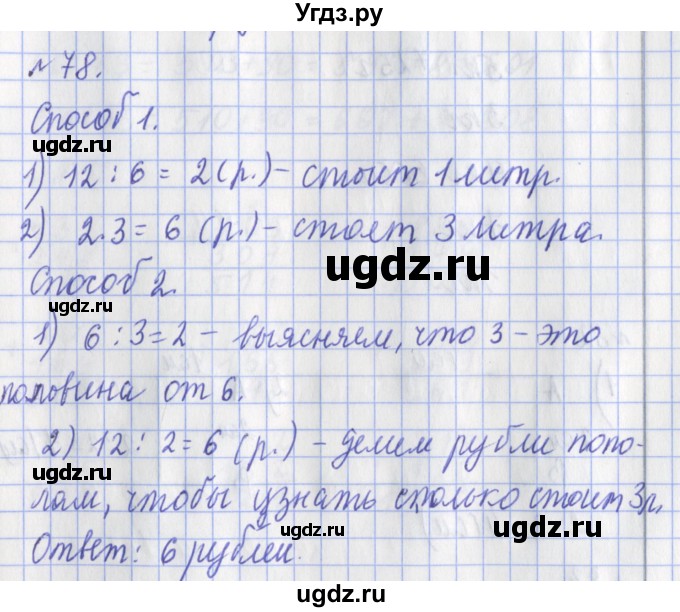 Угdz.ру
№ 78.
Способ 1.
ugdz.ru
ugdz.ru
1) 12 : 6 = 2 (р.) – стоит 1 литр.
ugdz.ru
2) 2·3 = 6 (р.) – стоят 3 литра.
ugdz.ru
Способ 2.
ugdz.ru
1) 6 : 3 = 2 – выясняем, что 3 – это
половина от 6.
ugdz.ru
ugdz.ru
2) 12 : 2 = 6 (р.) – делим рубли попо-
ugdz.ru
лам, чтобы узнать сколько стоит 3 л.
ugdz.ru
Ответ: 6 рублей.
ugdz.ru
ugdz.ru